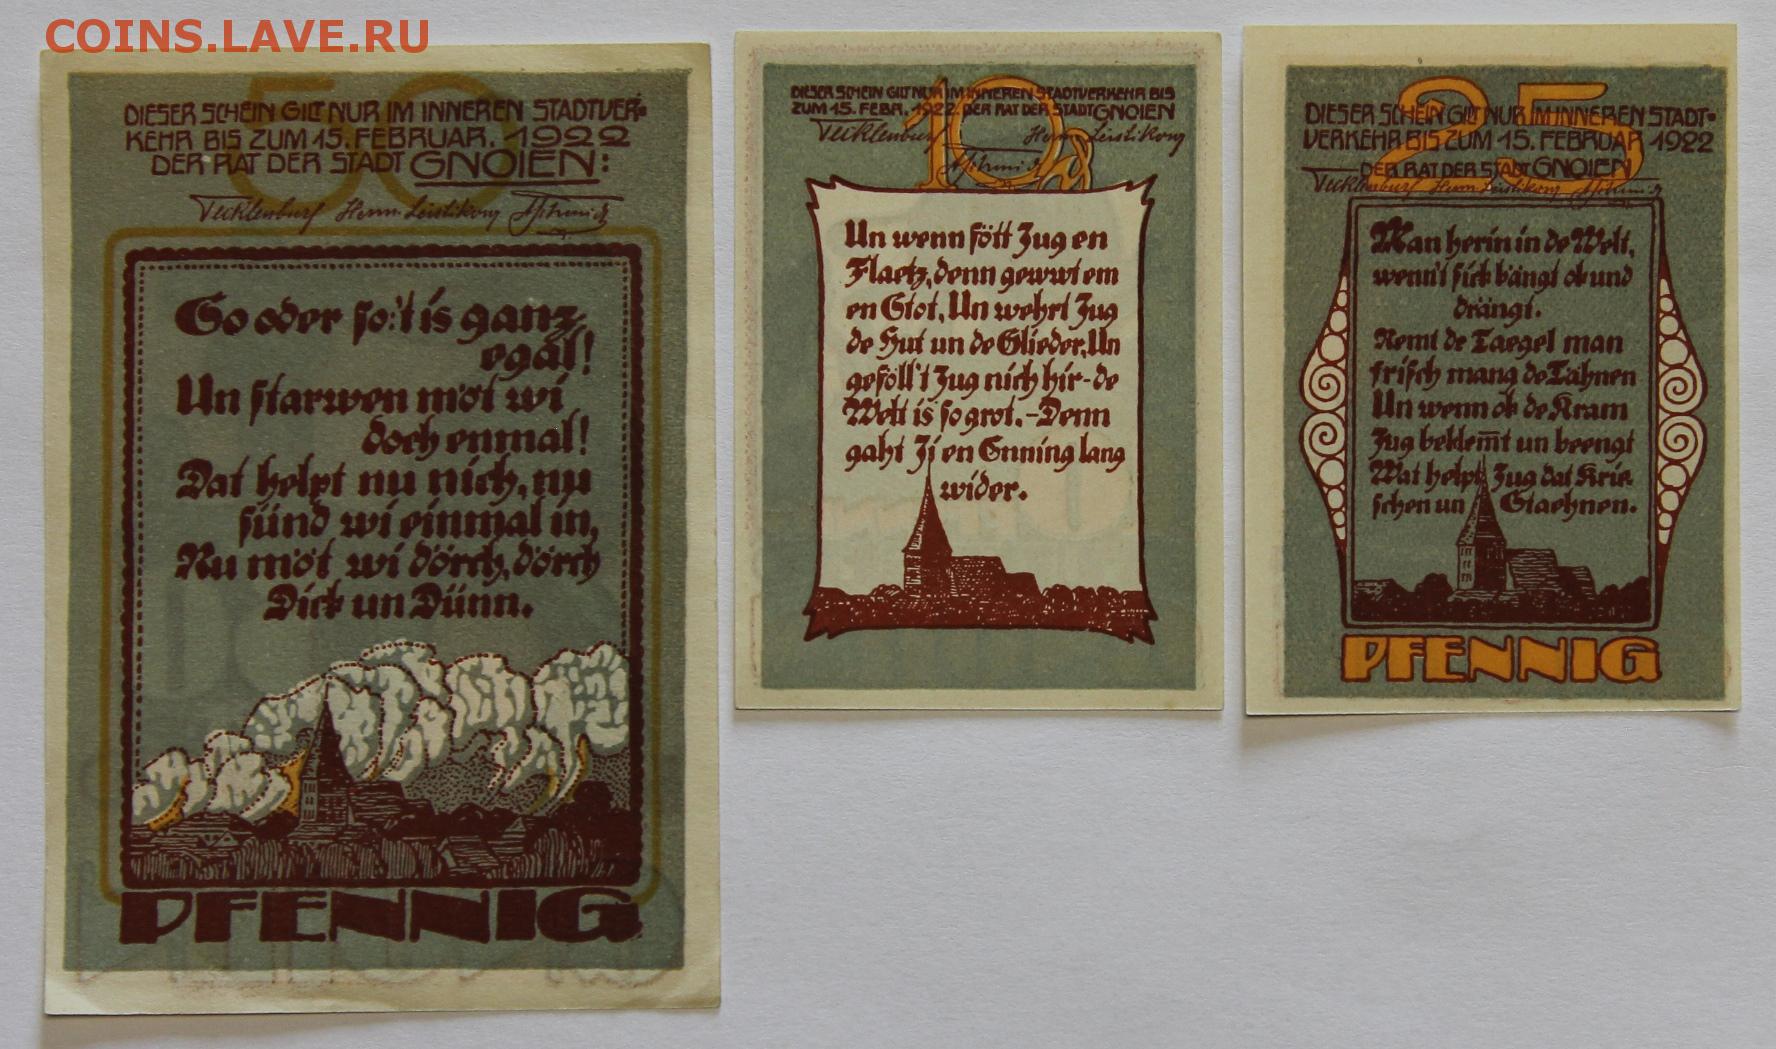 COINS.LAVE.RU
50
DIESER SCHEIN GILT NUR IM INNEREN STADTVER-
KEHR BIS ZUM 15. FEBRUAR. 1922
DER RAT DER STADT GNOIEN:
Tecklenburg Herm. Leistikow A. Schmidt
So oder so: 't is ganz
egal!
Un starwen möt wi
doch enmal!
Dat helpt nu nich, nu
sünd wi einmal in,
Nu möt wi dörch, dörch
Dick un Dünn.
PFENNIG
10
DIESER SCHEIN GILT NUR IM INNEREN STADTVERKEHR BIS
ZUM 15. FEBR. 1922. DER RAT DER STADT GNOIEN
Tecklenburg Herm. Leistikow
A. Schmidt
Un wenn fött Jug en
Flaetz, denn gewwt em
en Stot, Un wehrt Jug
de Hut un de Glieder, Un
geföll't Jug nich hir-de
Welt is so grot.-Denn
gaht Ji en Enning lang
wider.
25
DIESER SCHEIN GILT NUR IM INNEREN STADT-
VERKEHR BIS ZUM 15. FEBRUAR 1922
DER RAT DER STADT GNOIEN
Tecklenburg Herm. Leistikow A. Schmidt
Man herin in de Welt,
wenn't sick bängt ok und
drängt.
Nemt de Taegel man
frisch mang de Tähnen
Un wenn ok de Kram
Jug beklem̅t un beengt
Wat helpt Jug dat Krie-
schen un Staehnen.
PFENNIG